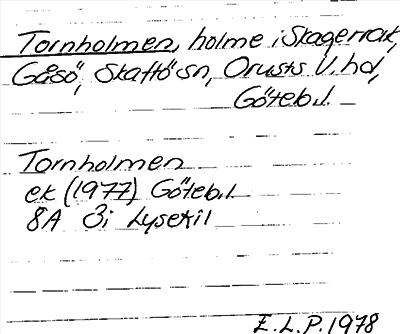 Tornholmen, holme i Skagerrak,
Gåsö, Skaftö sn, Orusts V. hd,
Göteb.l.
Tornholmen
ek (1977) Göteb.l.
8A Öi Lysekil
E.L.P. 1978